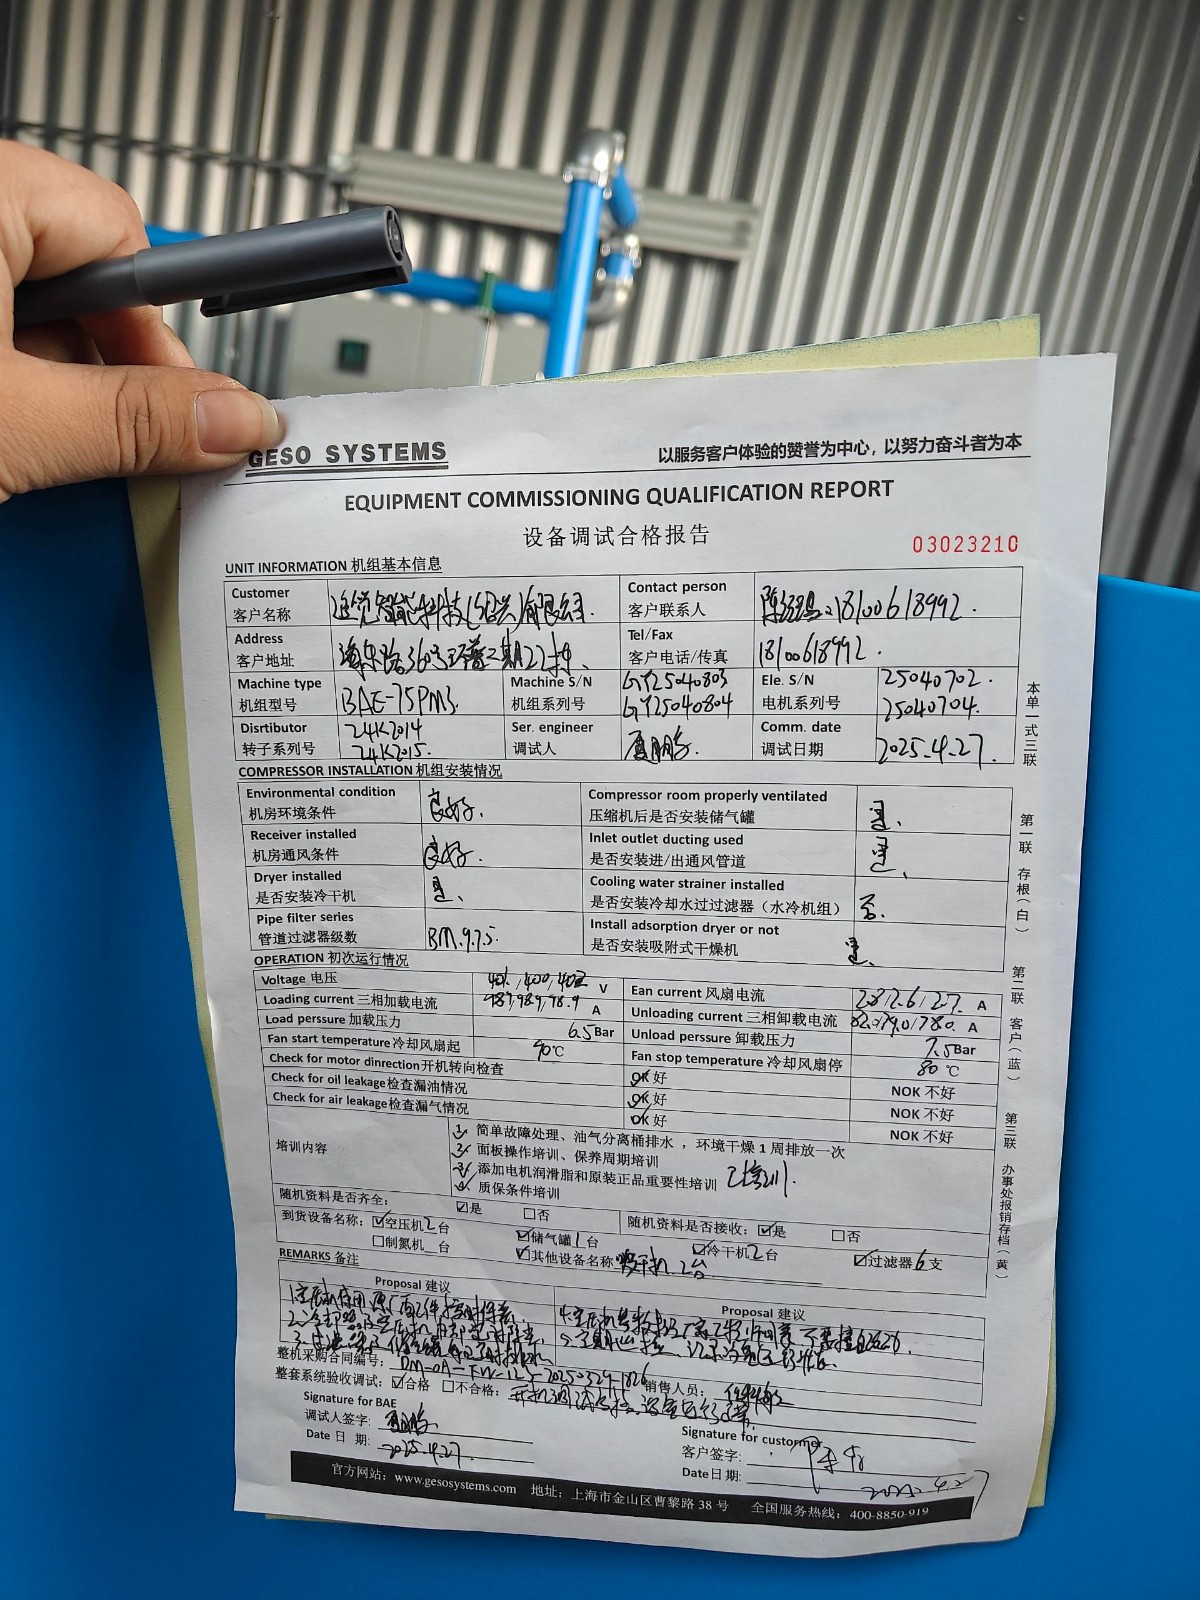 GESO SYSTEMS
以服务客户体验的赞誉为中心，以努力奋斗者为本
EQUIPMENT COMMISSIONING QUALIFICATION REPORT
设备调试合格报告
03023210
UNIT INFORMATION 机组基本信息
Customer 客户名称 智能科技(绍兴)有限公司.
Contact person 客户联系人 18100618992.
Address 客户地址 360号 二期22栋、
Tel/Fax 客户电话/传真 18100618992.
Machine type 机组型号 BAE-75PM3.
Machine S/N 机组系列号 GY25040803 GY25040804
Ele. S/N 电机系列号 25040702. 25040704.
Disrtibutor 转子系列号 24K2014 24K2015.
Ser. engineer 调试人
Comm. date 调试日期 2025.4.27.
COMPRESSOR INSTALLATION 机组安装情况
Environmental condition 机房环境条件 良好.
Compressor room properly ventilated 压缩机后是否安装储气罐 是、
Receiver installed 机房通风条件 良好.
Inlet outlet ducting used 是否安装进/出通风管道 是、
Dryer installed 是否安装冷干机 是、
Cooling water strainer installed 是否安装冷却水过过滤器（水冷机组） 否.
Pipe filter series 管道过滤器级数 BM.9.7.5.
Install adsorption dryer or not 是否安装吸附式干燥机 是、
OPERATION 初次运行情况
Voltage 电压 401,400,402 V
Ean current 风扇电流 A
Loading current 三相加载电流 A
Unloading current 三相卸载电流 A
Load perssure 加载压力 6.5 Bar
Unload perssure 卸载压力 7.5 Bar
Fan start temperature 冷却风扇起 90 ℃
Fan stop temperature 冷却风扇停 80 ℃
Check for motor dinrection 开机转向检查 OK 好 NOK 不好
Check for oil leakage 检查漏油情况 OK 好 NOK 不好
Check for air leakage 检查漏气情况 OK 好 NOK 不好
培训内容
1、简单故障处理、油气分离桶排水，环境干燥 1 周排放一次
2、面板操作培训、保养周期培训
3、添加电机润滑脂和原装正品重要性培训 已培训.
4、质保条件培训
随机资料是否齐全: ☑是 □否 随机资料是否接收: ☑是 □否
到货设备名称: ☑空压机2台 ☑储气罐1台 ☑冷干机2台 ☑过滤器6支
□制氮机_台 ☑其他设备名称 吸干机 2台
REMARKS 备注
Proposal 建议
Proposal 建议
1.空压机使用原厂配件按时保养.
整机采购合同编号: DM-OA-FW-125-20250329-1826 销售人员:
整套系统验收调试: ☑合格 □不合格: 开机调试 设备运行正常.
Signature for BAE
调试人签字:
Date 日 期: 2025.4.27.
Signature for custormer
客户签字:
Date日期: 2025.4.27
官方网站: www.gesosystems.com 地址: 上海市金山区曹黎路 38 号 全国服务热线: 400-8850-919
本单一式三联 第一联 存根（白） 第二联 客户（蓝） 第三联 办事处报销存档（黄）